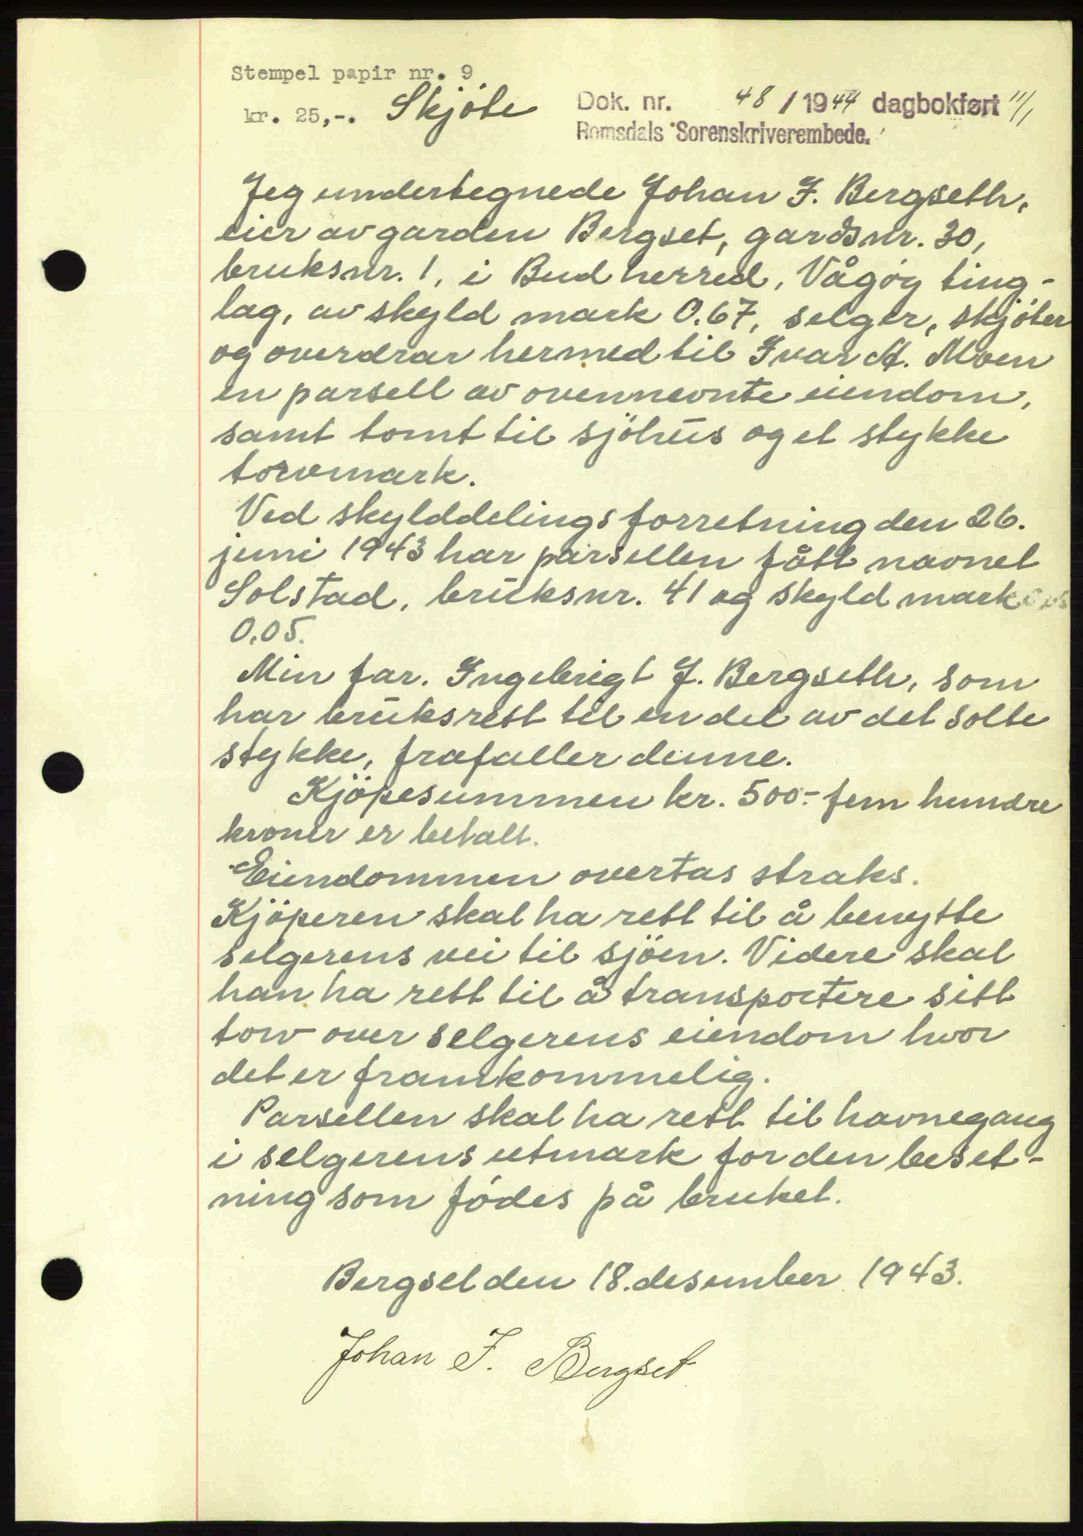 Stempel papir nr. 9
kr. 25,-. Skjöte
Dok. nr. 48 / 1944 dagbokført 11/1
Romsdals Sorenskriverembede.
Jeg undertegnede Johan I. Bergseth,
eier av garden Bergset, gardsnr. 30,
bruksnr. 1, i Bud herred, Vågøy ting-
lag, av skyld mark 0.67, selger, skjöter
og overdrar hermed til Ivar A. Moen
en parsell av ovennevnte eiendom,
samt tomt til sjöhus og et stykke
torvmark.
Ved skylddelingsforretning den 26.
juni 1943 har parsellen fått navnet
Solstad, bruksnr. 41 og skyld mark
0.05.
Min far. Ingebrigt J. Bergseth, som
har bruksrett til en del av det solte
stykke, frafaller denne.
Kjöpesummen kr. 500.- fem hundre
kroner er betalt.
Eiendommen overtas straks.
Kjöperen skal ha rett til å benytte
selgerens vei til sjöen. Videre skal
han ha rett til å transportere sitt
torv over selgerens eiendom hvor
det er framkommelig.
Parsellen skal ha rett til havnegang
i selgerens utmark for den beset-
ning som födes på bruket.
Bergset den 18. desember 1943.
Johan I. Bergset